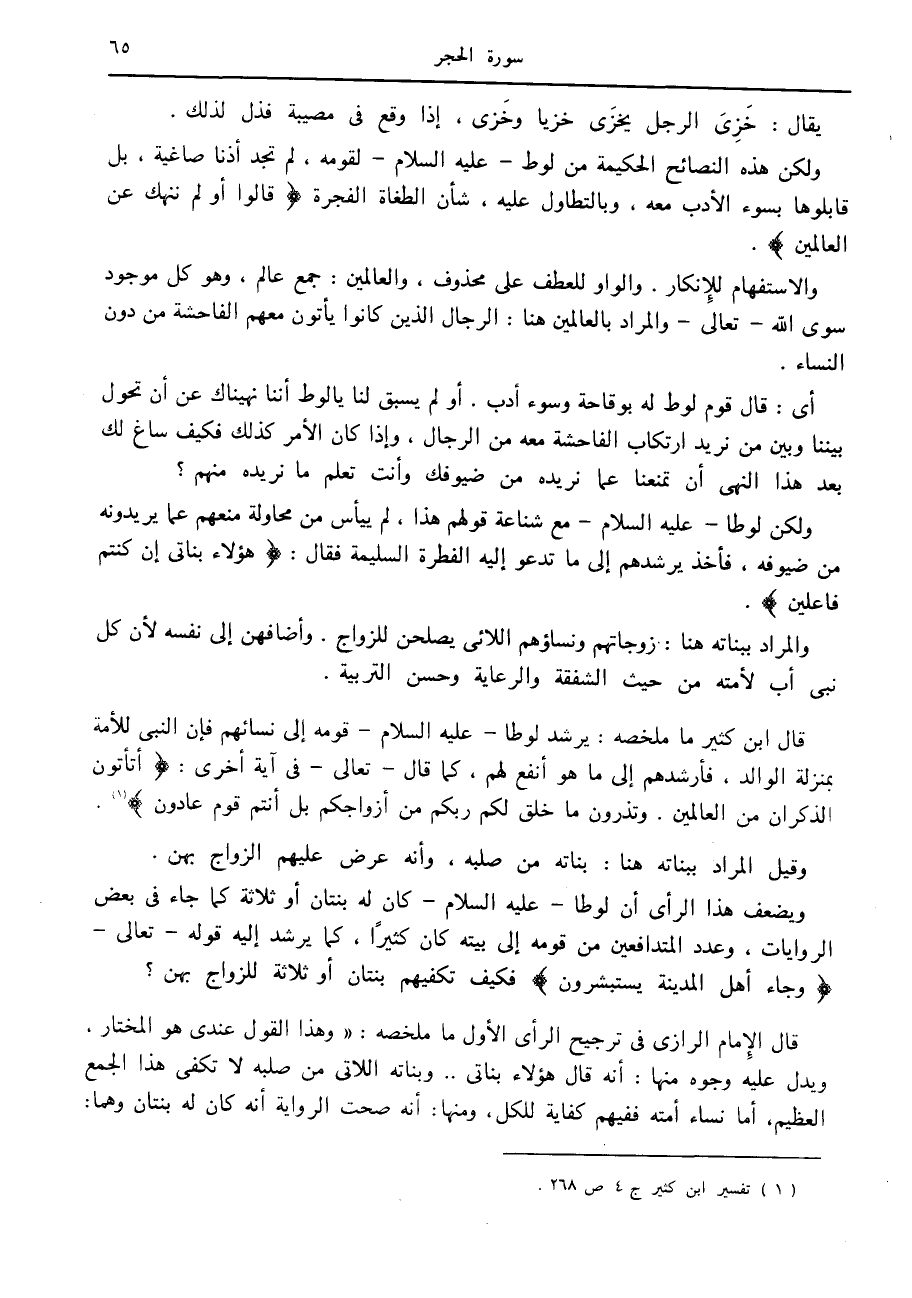 سورة الحجر
٦٥
يقال : خَزِىَ الرجل يخزَى خزيا وخَزى ، إذا وقع فى مصيبة فذل لذلك .
ولكن هذه النصائح الحكيمة من لوط – عليه السلام – لقومه ، لم تجد أذنا صاغية ، بل
قابلوها بسوء الأدب معه ، وبالتطاول عليه ، شأن الطغاة الفجرة ﴿ قالوا أو لم ننهك عن
العالمين ﴾ .
والاستفهام للإِنكار . والواو للعطف على محذوف ، والعالمين : جمع عالم ، وهو كل موجود
سوى الله – تعالى – والمراد بالعالمين هنا : الرجال الذين كانوا يأتون معهم الفاحشة من دون
النساء .
أى : قال قوم لوط له بوقاحة وسوء أدب . أو لم يسبق لنا يالوط أننا نهيناك عن أن تحول
بيننا وبين من نريد ارتكاب الفاحشة معه من الرجال ، وإذا كان الأمر كذلك فكيف ساغ لك
بعد هذا النهى أن تمنعنا عما نريده من ضيوفك وأنت تعلم ما نريده منهم ؟
ولكن لوطا – عليه السلام – مع شناعة قولهم هذا ، لم ييأس من محاولة منعهم عما يريدونه
من ضيوفه ، فأخذ يرشدهم إلى ما تدعو إليه الفطرة السليمة فقال : ﴿ هؤلاء بناتى إن كنتم
فاعلين ﴾ .
والمراد ببناته هنا : زوجاتهم ونساؤهم اللائى يصلحن للزواج . وأضافهن إلى نفسه لأن كل
نبى أب لأمته من حيث الشفقة والرعاية وحسن التربية .
قال ابن كثير ما ملخصه : يرشد لوطا – عليه السلام – قومه إلى نسائهم فإن النبى للأمة
بمنزلة الوالد ، فأرشدهم إلى ما هو أنفع لهم ، كما قال – تعالى – فى آية أخرى : ﴿ أتأتون
الذكران من العالمين . وتذرون ما خلق لكم ربكم من أزواجكم بل أنتم قوم عادون ﴾(١) .
وقيل المراد ببناته هنا : بناته من صلبه ، وأنه عرض عليهم الزواج بهن .
ويضعف هذا الرأى أن لوطا – عليه السلام – كان له بنتان أو ثلاثة كما جاء فى بعض
الروايات ، وعدد المتدافعين من قومه إلى بيته كان كثيرًا ، كما يرشد إليه قوله – تعالى –
﴿ وجاء أهل المدينة يستبشرون ﴾ فكيف تكفيهم بنتان أو ثلاثة للزواج بهن ؟
قال الإِمام الرازى فى ترجيح الرأى الأول ما ملخصه : « وهذا القول عندى هو المختار ،
ويدل عليه وجوه منها : أنه قال هؤلاء بناتى .. وبناته اللاتى من صلبه لا تكفى هذا الجمع
العظيم، أما نساء أمته ففيهم كفاية للكل، ومنها: أنه صحت الرواية أنه كان له بنتان وهما:
( ١ ) تفسير ابن كثير ج ٤ ص ٢٦٨ .